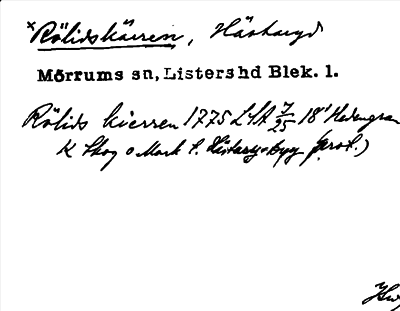 ×Rölidskärren, Hästaryd
Mörrums sn, Listers hd Blek. l.
Rölids kierren 1775 LSA 7/25 18' Hedengran
K Skog o Mark t. Hästaryd by (prot.)